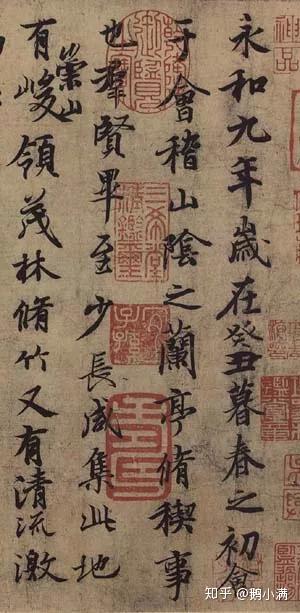 永和九年歲在癸丑暮春之初會
于會稽山陰之蘭亭脩稧事
也羣賢畢至少長咸集此地
有崇山峻領茂林脩竹又有清流激
神品
三希堂精鑑璽
宜子孫
知乎 @鹅小满